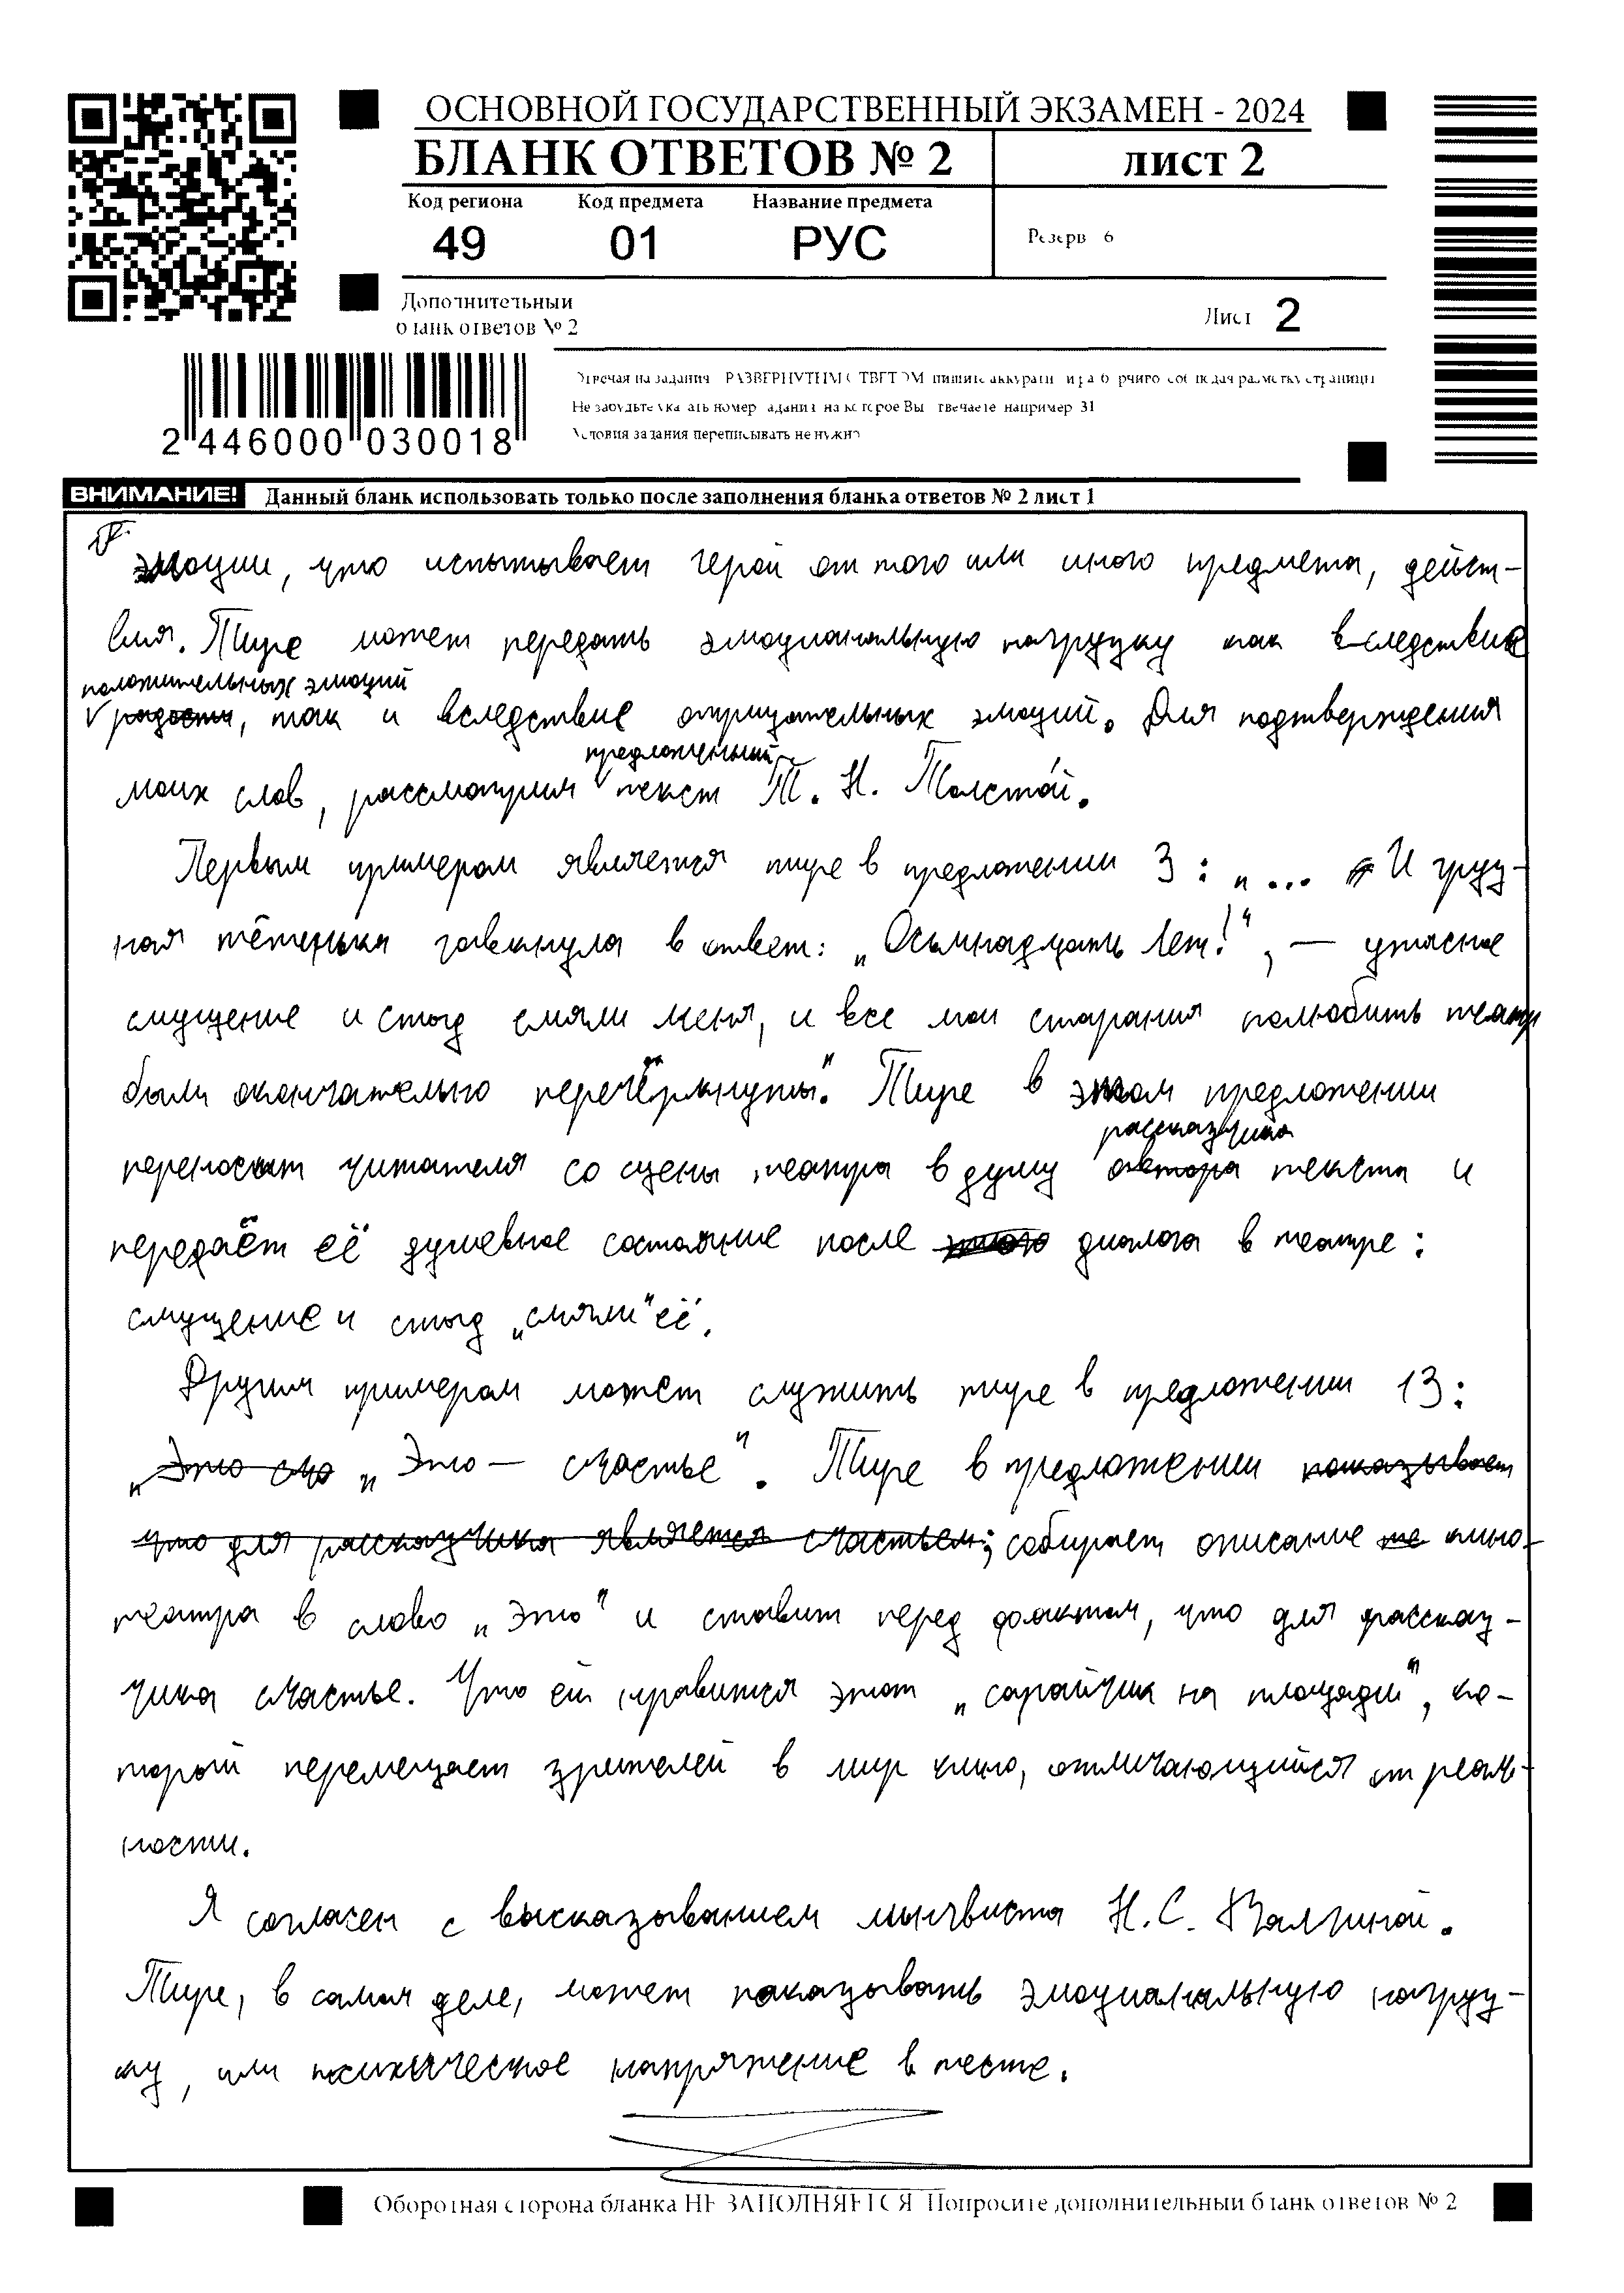 ОСНОВНОЙ ГОСУДАРСТВЕННЫЙ ЭКЗАМЕН - 2024
БЛАНК ОТВЕТОВ № 2
ЛИСТ 2
Код региона Код предмета Название предмета
49 01 РУС
Резерв 6
Дополнительный
бланк ответов № 2
Лист 2
2 446000 030018
Отвечая на задания РАЗВЕРНУТЫМ ОТВЕТОМ пишите аккуратно и разборчиво соблюдая разметку страницы
Не забудьте указать номер задания на которое Вы отвечаете например 31
Условия задания переписывать не нужно
ВНИМАНИЕ! Данный бланк использовать только после заполнения бланка ответов № 2 лист 1
эмоции, что испытывает герой от того или иного предмета, дейст-
вия. Тире может передать эмоциональную нагрузку как вследствие
положительных эмоций
радости, так и вследствие отрицательных эмоций. Для подтверждения
предложенный
моих слов, рассмотрим текст Т. Н. Толстой.
Первым примером является тире в предложении 3: „... И груз-
ная тётенька гавкнула в ответ: „Осьмнадцать лет!“, — ужасное
смущение и стыд смяли меня, и все мои старания полюбить театр
были окончательно перечёркнуты“. Тире в этом предложении
рассказчика
переносит читателя со сцены театра в душу автора текста и
передаёт её душевное состояние после этого диалога в театре:
смущение и стыд „смяли“ её.
Другим примером может служить тире в предложении 13:
„Это сча „Это — счастье“. Тире в предложении показывает
что для рассказчика является счастьем; собирает описание те кино-
театра в слово „Это“ и ставит перед фактом, что для рассказ-
чика счастье. Что ей нравится этот „сарайчик на площади“, ко-
торой перемещает зрителей в мир кино, отличающийся от реаль-
ности.
Я согласен с высказыванием лингвиста Н.С. Валгиной.
Тире, в самом деле, может показывать эмоциональную нагруз-
ку, или психическое напряжение в тесте.
Оборотная сторона бланка НЕ ЗАПОЛНЯЕТСЯ Попросите дополнительный бланк ответов № 2